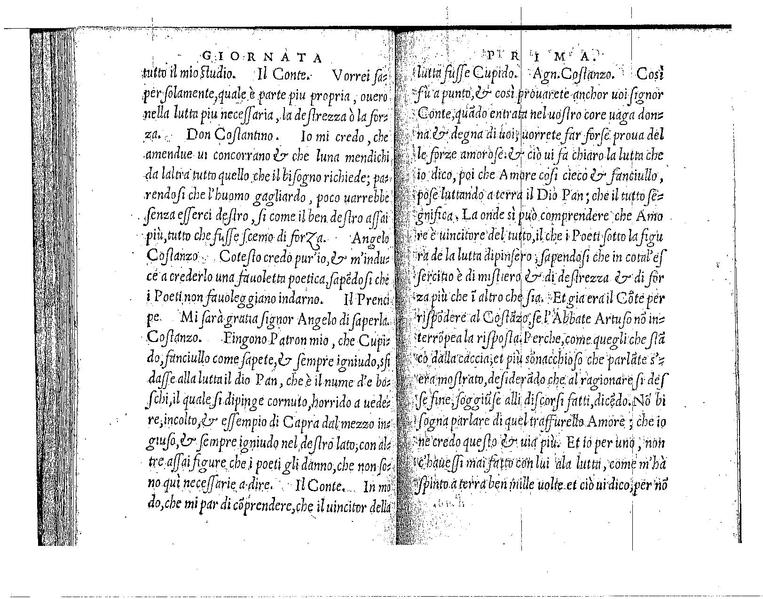 GIORNATA
tutto il mio studio. Il Conte. Vorrei sa-
per solamente, quale è parte piu propria, ouero
nella lutta piu necessaria, la destrezza ò la for-
za. Don Costantino. Io mi credo, che
amendue ui concorrano & che luna mendichi
da laltra tutto quello, che il bisogno richiede; pa-
rendosi che l'huomo gagliardo, poco uarrebbe
senza esserci destro, si come il ben destro assai
più, tutto che fusse scemo di forza. Angelo
Costanzo. Cotesto credo pur'io, & m'indu-
ce a crederlo una fauoletta poetica, sapēdosi che
i Poeti non fauoleggiano indarno. Il Prenci
pe. Mi sarà gratia signor Angelo di saperla.
Costanzo. Fingono Patron mio, che Cupi-
do, fanciullo come sapete, & sempre igniudo, sfi
dasse alla lutta il dio Pan, che è il nume d'e bo-
schi, il quale si dipinge cornuto, horrido a uede-
re, incolto, & essempio di Capra dal mezzo in
giuso, & sempre igniudo nel destro lato; con al-
tre assai figure che i poeti gli danno, che non so-
no qui necessarie a dire. Il Conte. In mo
do, che mi par di cōprendere, che il uincitor della
PRIMA.
lutta fusse Cupido. Agn. Costanzo. Così
fù a punto, & così prouarete anchor uoi signor
Conte, quādo entrata nel uostro core uaga don-
na & degna di uoi, uorrete far forse proua del
le forze amorose. & ciò ui fa chiaro la lutta che
io dico, poi che Amore cosi cieco & fanciullo,
pose luttando a terra il Dio Pan; che il tutto se-
gnifica. La onde si può comprendere che Amo
re è uincitore del tutto, il che i Poeti sotto la figu
ra de la lutta dipinsero; sapendosi che in cotal'es
sercitio è di mistiero & di destrezza & di for
za più che ī altro che sia. Et gia era il Cōte per
rispōdere al Costāzo, se l'Abbate Artuso nō in-
terrōpea la risposta. Perche, come quegli che stā
co dalla caccia; et più sonacchioso che parlāte s'-
era mostrato, desiderādo che al ragionare si des
se fine, soggiūse alli discorsi fatti, dicēdo. Nō bi
sogna parlare di quel traffurello Amore; che io
ne credo questo & uia più. Et io per uno, non
c'hauessi mai fatto con lui ala lutta, come m'hà
spinto a terra ben mille uolte. et ciò ui dico; per nō